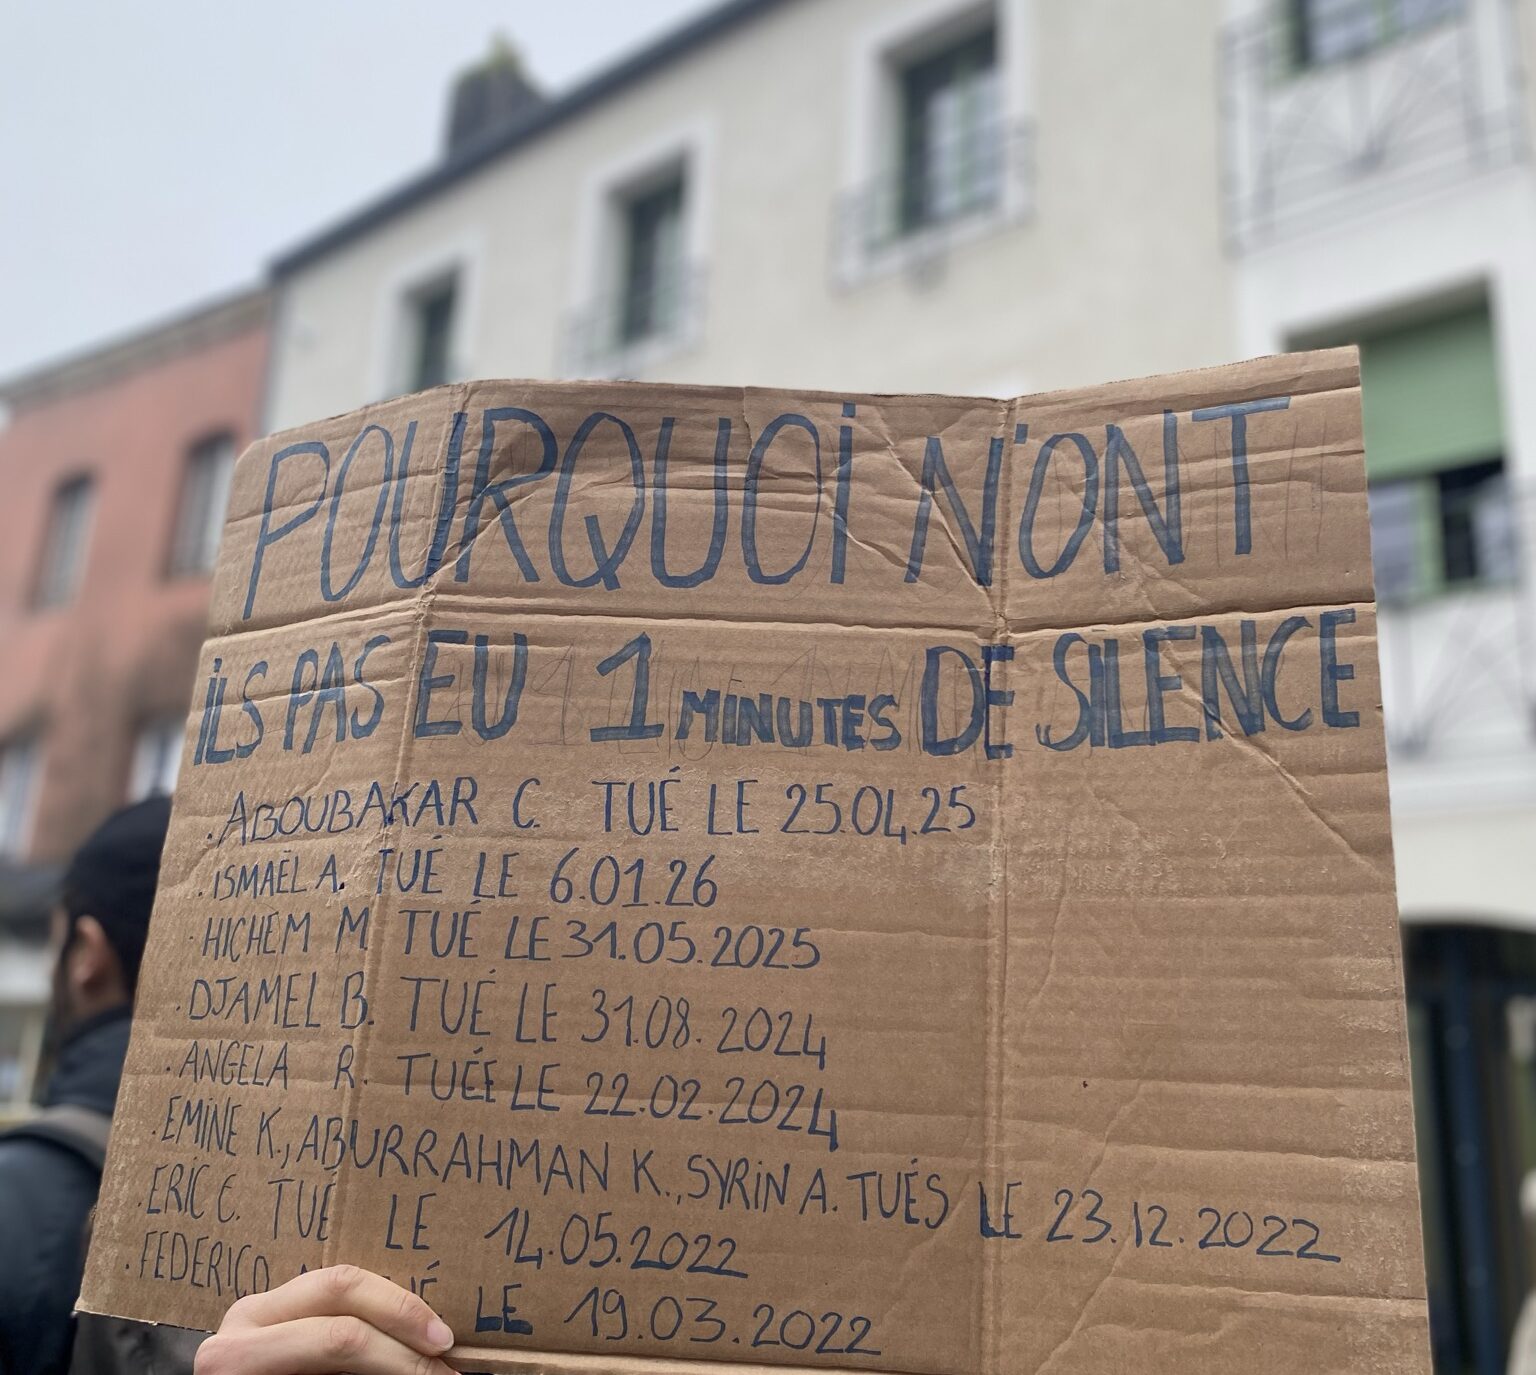 POURQUOI N'ONT
ILS PAS EU 1 MINUTES DE SILENCE
. ABOUBAKAR C. TUÉ LE 25.04.25
. ISMAËL A. TUÉ LE 6.01.26
. HICHEM M TUÉ LE 31.05.2025
. DJAMEL B. TUÉ LE 31.08.2024
. ANGELA R. TUÉE LE 22.02.2024
. EMINE K., ABURRAHMAN K., SYRIN A. TUÉS LE 23.12.2022
. ERIC C. TUÉ LE 14.05.2022
. FEDERICO LE 19.03.2022